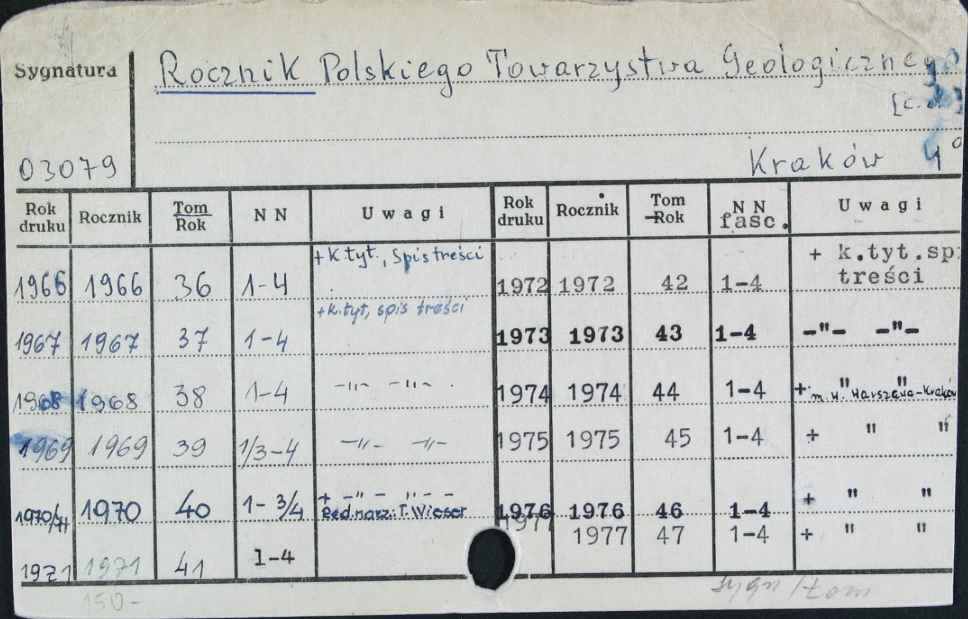 Sygnatura
Rocznik Polskiego Towarzystwa Geologicznego
[c.d.]
03079
Kraków 4°
Rok druku Rocznik Tom Rok NN Uwagi Rok druku Rocznik Tom Rok NN fasc. Uwagi
1966 1966 36 1-4 +k.tyt., Spis treści 1972 1972 42 1-4 + k.tyt.sp treści
1967 1967 37 1-4 +k.tyt, spis treści 1973 1973 43 1-4 -"- -"-
1968 1968 38 1-4 -"- -"- 1974 1974 44 1-4 + " " m.w. Warszawa-Kraków
1969 1969 39 1/3-4 -"- -"- 1975 1975 45 1-4 + " "
1970/71 1970 40 1-3/4 + -"- -"- - Red. narz. T. Wieser 1976 1976 46 1-4 + " "
1977 1977 47 1-4 + " "
1971 1971 41 1-4
150-